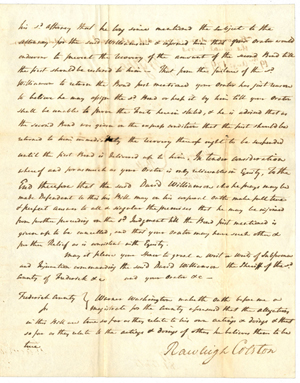 his sd attorney that he long since mentioned the subject to the
attorney for the said Williamson & informed him that your orator would
endeavor to prevent the recovery of the amount of the second Bond till
the first should be restored to him. That from the failure of the sd
Williamson to return the Bond first mentioned your Orator has just reason
to believe he may assign the sd Bond or keep it by him till your Orator
shall be unable to prove the facts herein stated, & he is advised that as
the second Bond was given on the express condition that the first should be
returned to him the recovery thereof ought to be suspended
until the first Bond is delivered up to him. In tender consideration
whereof and forasmuch as your Orator is only relievable in Equity. To the
End therefore that the said David Williamson who he prays may be
made Defendant to this his Bill may on his corporal oath make full true
& perfect answer to all & singular the premises that he may be enjoined
from further proceeding on the sd Judgment till the Bond first mentioned is
given up to be cancelled, and that your orator may have such other &
further Relief as is consistent with Equity.
May it please your Honr to grant a writ or writs of Subpoena
and Injunction commanding the said David Williamson the Sheriff of the sd
County of Frederick &c and your Orator &c
Frederick County
Warner Washington maketh oath before me a
magistrate for the County aforesaid that the allegations
in this Bill are true so far as they relate to his own actings & doings & that
so far as they relate to the actings & doings of others he believes them to be
true.
Rawleigh Colston